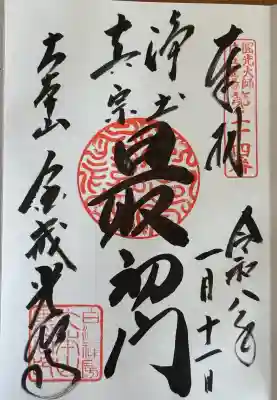 圓光大師
奉拝
令和八年
一月十一日
浄土
真宗
最初門
大本山 金戒光明寺